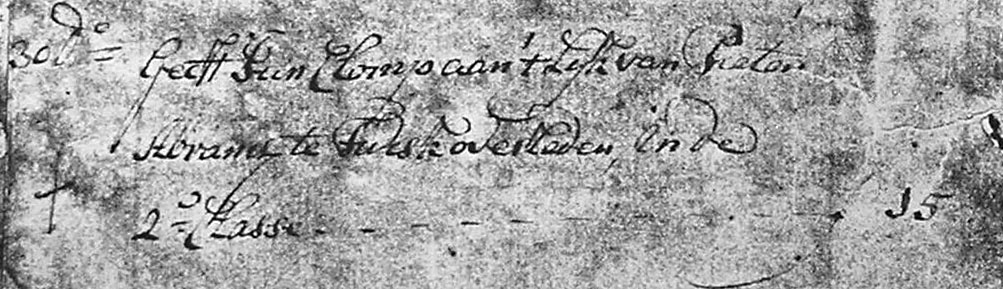 30 do= Geeft Jan Clomp aan't Lijk van Pieter
Abramsz te Twisk overleden, in de
2o= Classe - - - - - - - 15